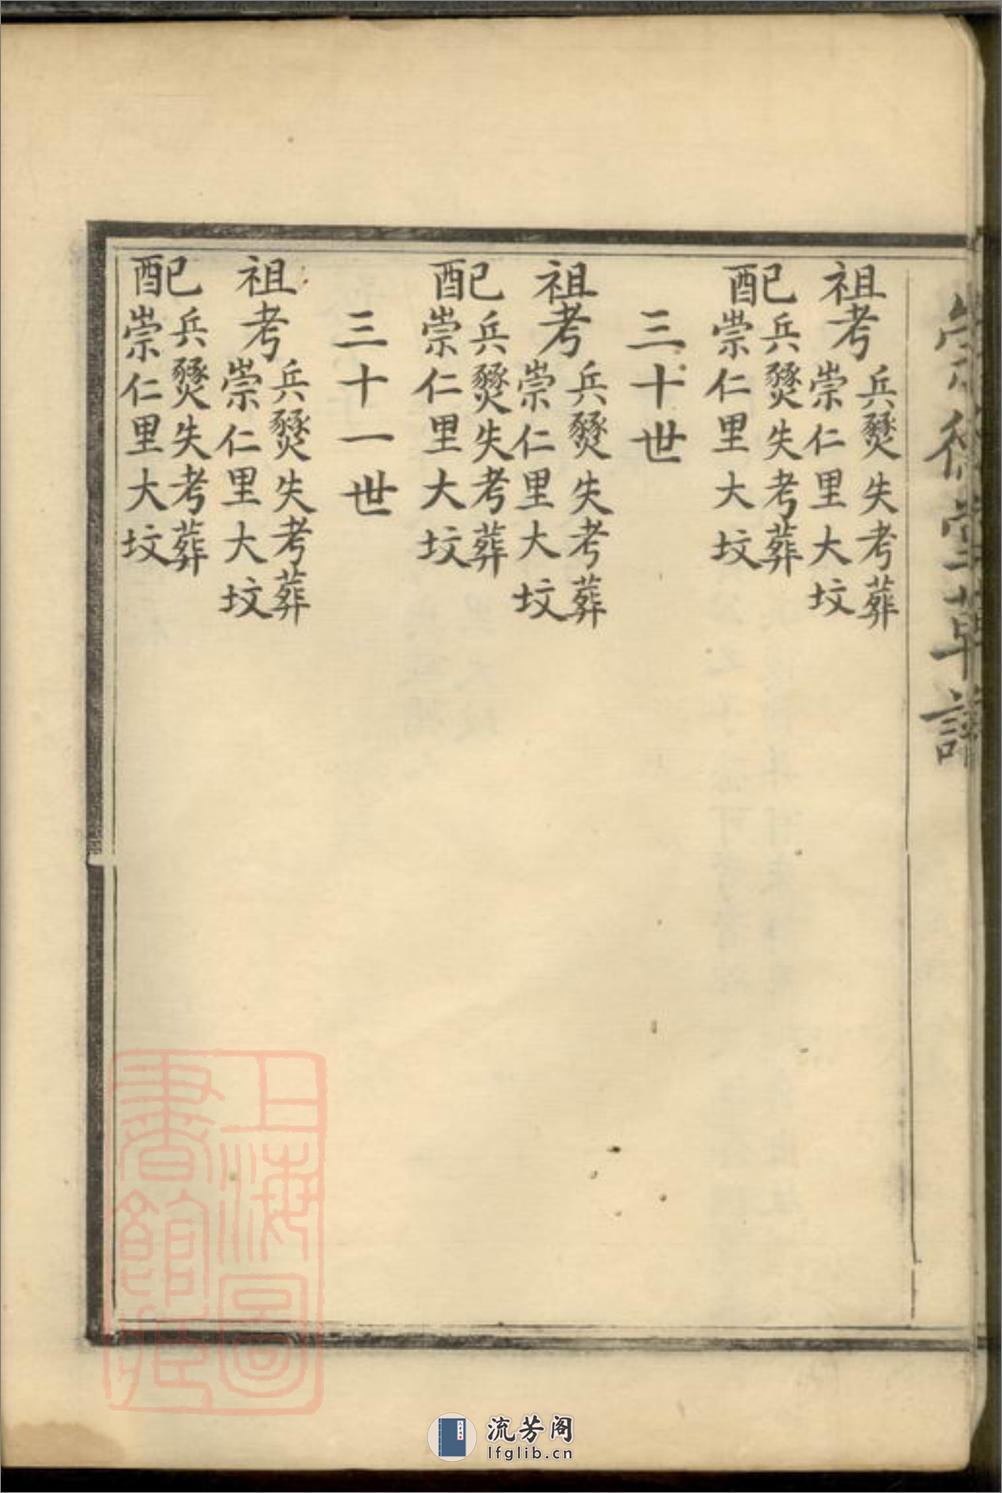 崇德堂草譜
祖考
兵燹失考葬
崇仁里大坟
配
兵燹失考葬
崇仁里大坟
三十世
祖考
兵燹失考葬
崇仁里大坟
配
兵燹失考葬
崇仁里大坟
三十一世
祖考
兵燹失考葬
崇仁里大坟
配
兵燹失考葬
崇仁里大坟
上海圖
書館藏
流芳阁
lfglib.cn